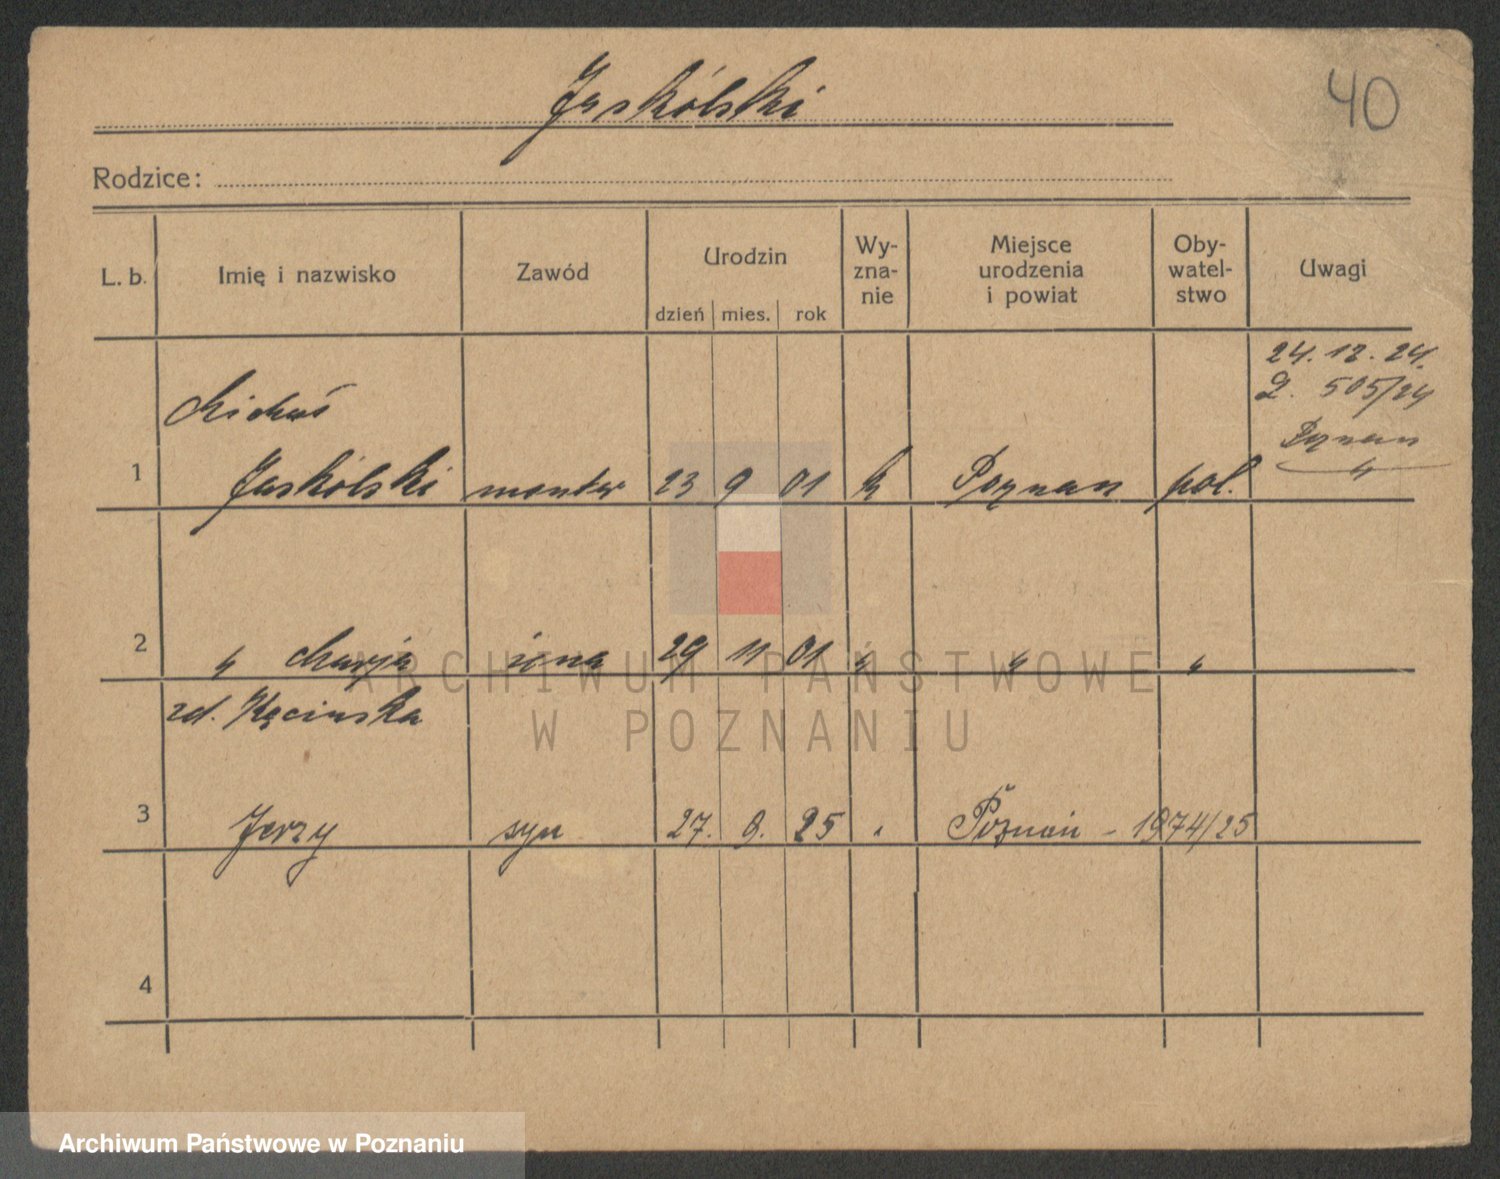 Jaskólski
40
Rodzice:
L. b. Imię i nazwisko Zawód Urodzin dzień mies. rok Wy-zna-nie Miejsce urodzenia i powiat Oby-watel-stwo Uwagi
24. 12. 24.
505/24
Poznan
1 Jaskólski monter 23 9 01 k Poznan pol.
2 " Marja żona 29 11 01 " " "
zd. Kęcinska
3 Jerzy syn 27. 8. 25 " Poznań - 1974/25
4
ARCHIWUM PAŃSTWOWE
W POZNANIU
Archiwum Państwowe w Poznaniu